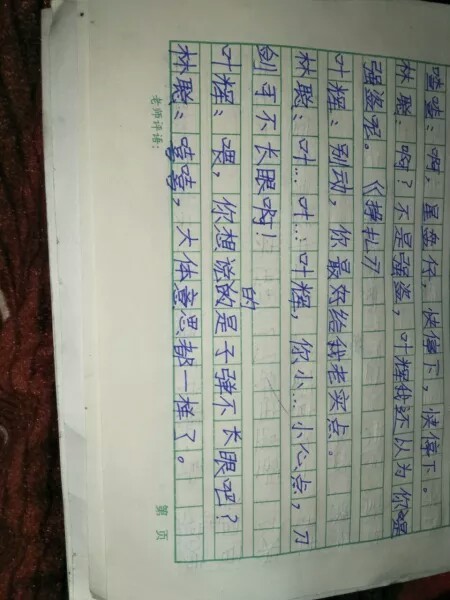 嘻嘻：啊，星燕仔，快停下，快停下。
林聪：啊？不是强盗，叶辉我还以为你是
强盗呢。《挣扎刀
叶辉：别动，你最好给我老实点。
林聪：叶…叶…叶辉，你小…小心点，刀
剑可不长眼啊！
叶辉：喂，你想说的是子弹不长眼吧？
的
林聪：嘻嘻，大体意思都一样了。
老师评语：
第 页